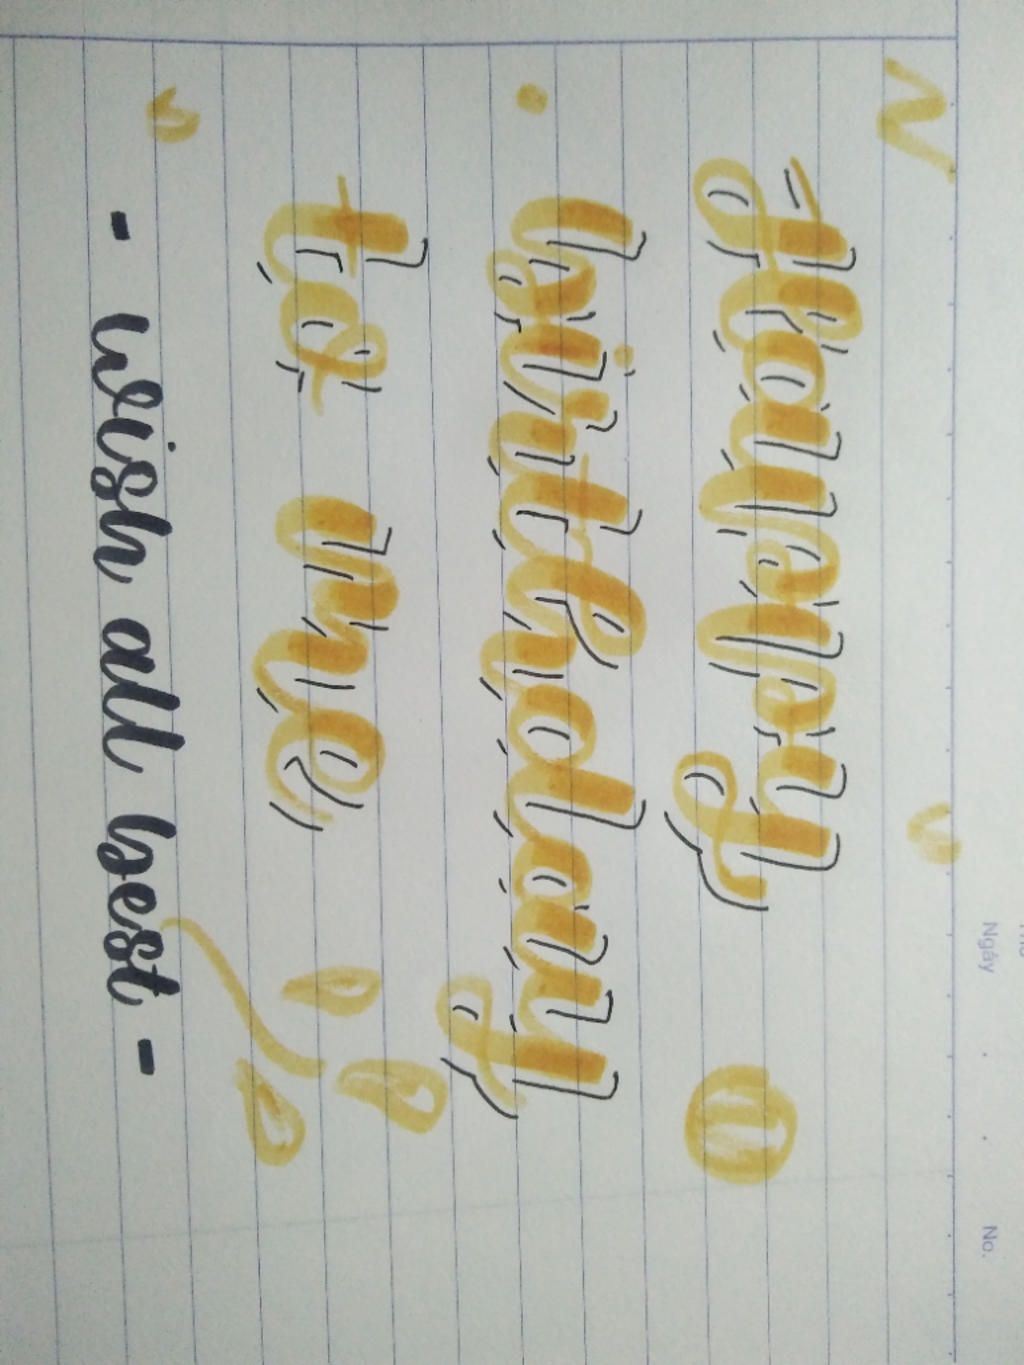 Ngày
No.
Happy
birthday
to me
- wish all best -